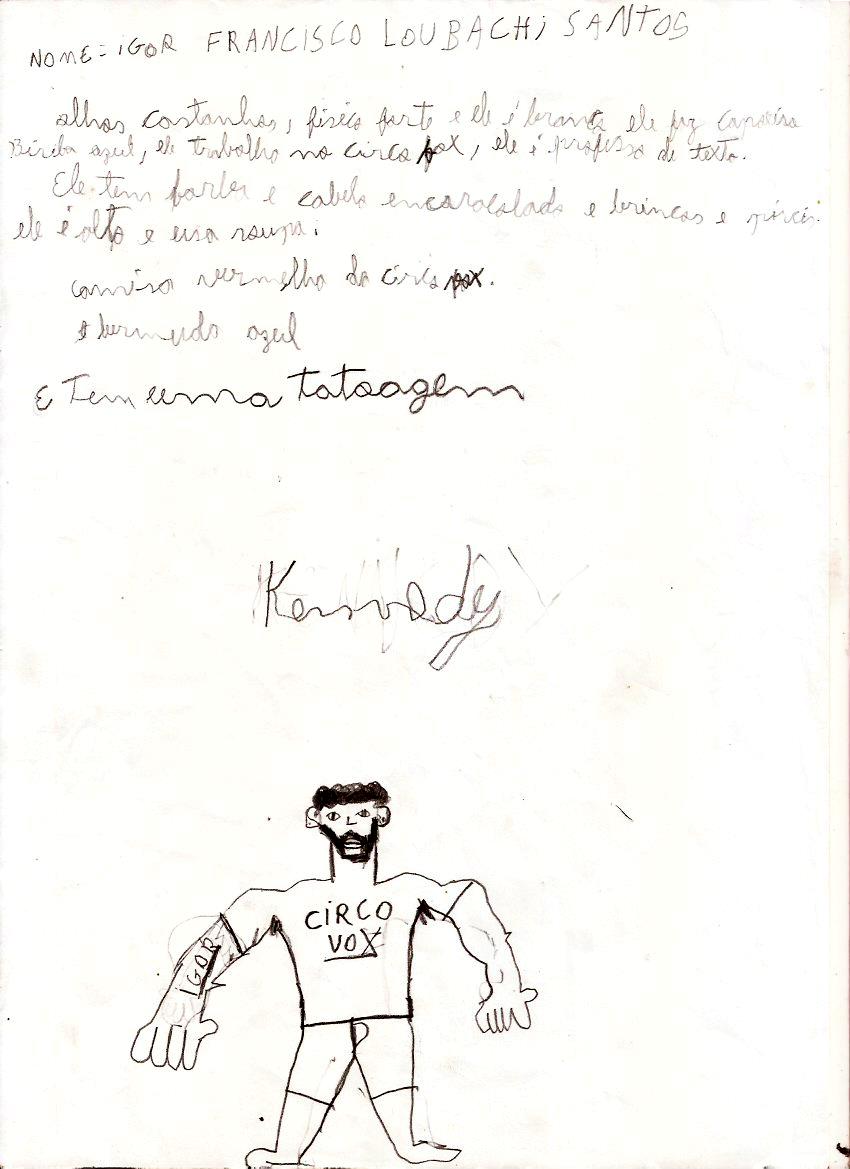 NOME= iGOR FRANCISCO LOUBACHi SANTOS
olhos castanhos, fisico forte e ele é branco ele faz capoeira
azul, ele trabalha no circo vox, ele é professo de texto.
Ele tem barba e cabelo encaracolado e brincos e pircin.
ele é alto e usa roupa:
camisa vermelha do circo vox.
e bermuda azul
E Tem uma tatoagem
Kennedy
CiRCO
VOX
IGOR